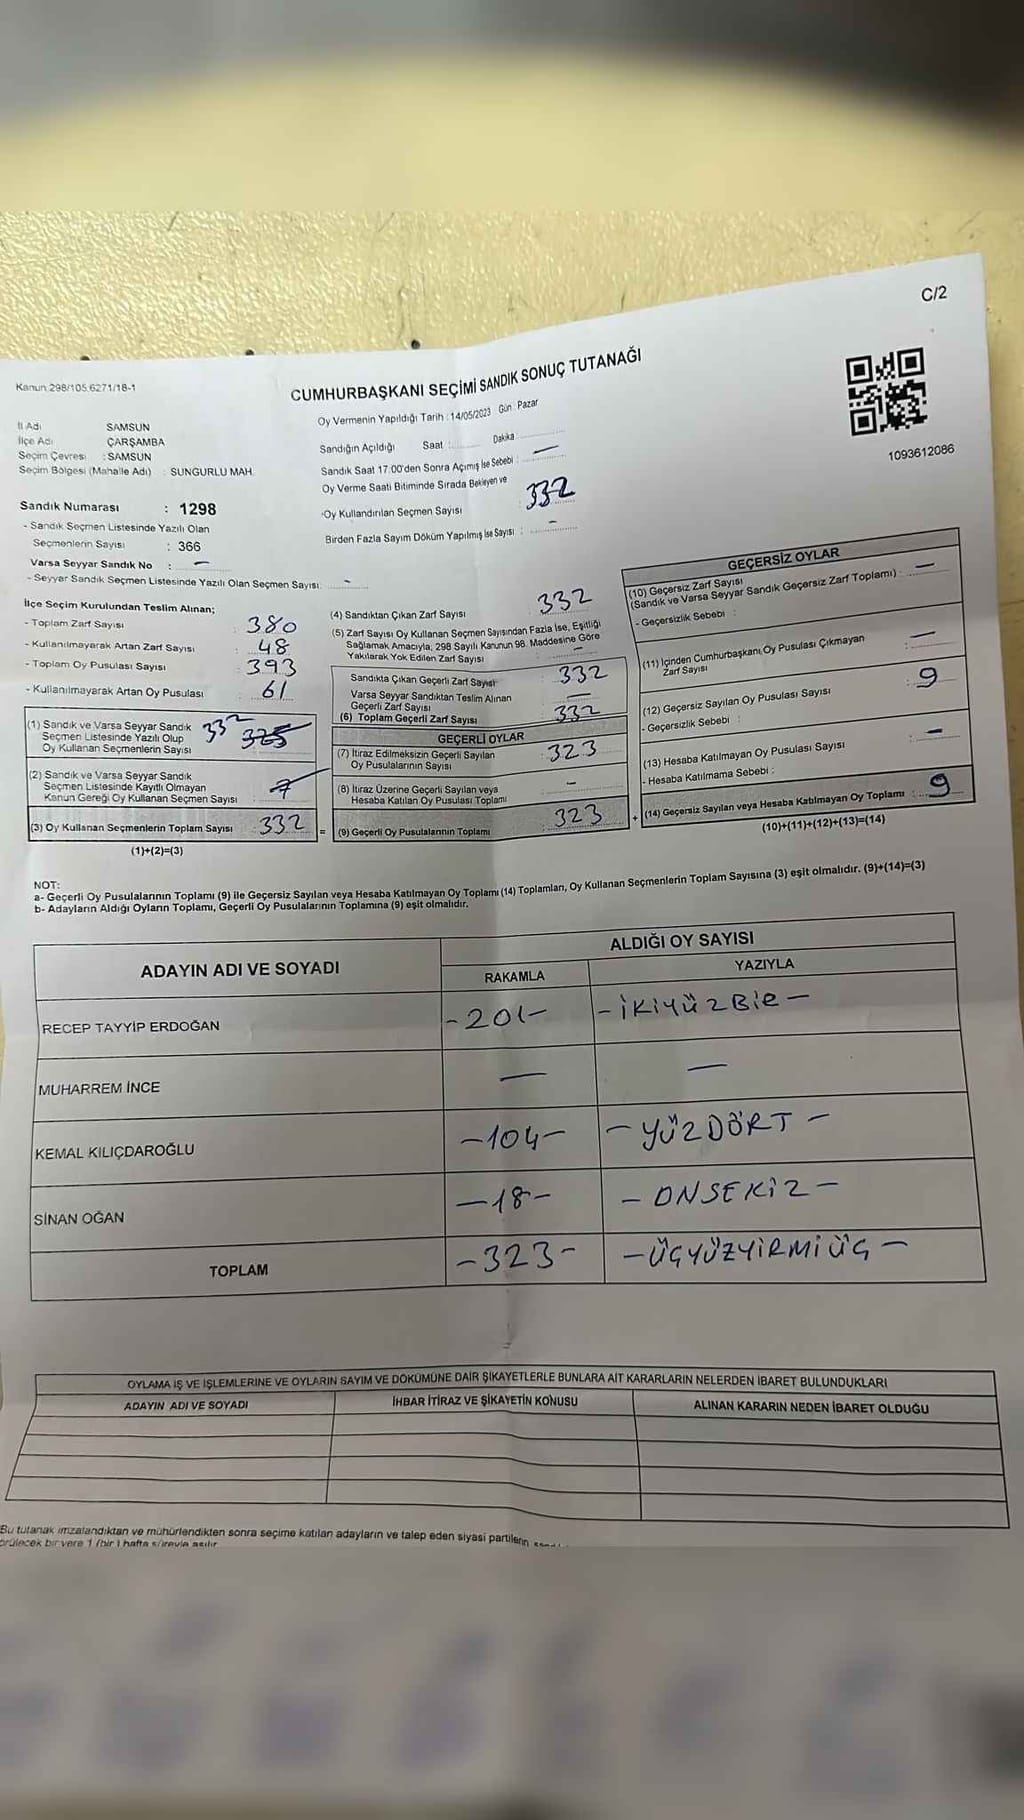 C/2
Kanun 298/105 6271/18-1
CUMHURBAŞKANI SEÇİMİ SANDIK SONUÇ TUTANAĞI
1093612086
İl Adı SAMSUN
İlçe Adı ÇARŞAMBA
Seçim Çevresi : SAMSUN
Seçim Bölgesi (Mahalle Adı) : SUNGURLU MAH.
Sandık Numarası : 1298
- Sandık Seçmen Listesinde Yazılı Olan
Seçmenlerin Sayısı : 366
Varsa Seyyar Sandık No : -
- Seyyar Sandık Seçmen Listesinde Yazılı Olan Seçmen Sayısı: -
Oy Vermenin Yapıldığı Tarih : 14/05/2023 Gün : Pazar
Sandığın Açıldığı Saat : Dakika :
Sandık Saat 17:00'den Sonra Açımış İse Sebebi : -
Oy Verme Saati Bitiminde Sırada Bekleyen ve
Oy Kullandırılan Seçmen Sayısı 332
Birden Fazla Sayım Döküm Yapılmış İse Sayısı : -
İlçe Seçim Kurulundan Teslim Alınan;
- Toplam Zarf Sayısı : 380
- Kullanılmayarak Artan Zarf Sayısı : 48
- Toplam Oy Pusulası Sayısı : 393
- Kullanılmayarak Artan Oy Pusulası : 61
(1) Sandık ve Varsa Seyyar Sandık
Seçmen Listesinde Yazılı Olup
Oy Kullanan Seçmenlerin Sayısı 332 325
(2) Sandık ve Varsa Seyyar Sandık
Seçmen Listesinde Kayıtlı Olmayan
Kanun Gereği Oy Kullanan Seçmen Sayısı : 7
(3) Oy Kullanan Seçmenlerin Toplam Sayısı : 332 =
(1)+(2)=(3)
(4) Sandıktan Çıkan Zarf Sayısı : 332
(5) Zarf Sayısı Oy Kullanan Seçmen Sayısından Fazla İse, Eşitliği
Sağlamak Amacıyla, 298 Sayılı Kanunun 98. Maddesine Göre
Yakılarak Yok Edilen Zarf Sayısı : -
Sandıkta Çıkan Geçerli Zarf Sayısı 332
Varsa Seyyar Sandıktan Teslim Alınan
Geçerli Zarf Sayısı -
(6) Toplam Geçerli Zarf Sayısı 332
GEÇERLİ OYLAR
(7) İtiraz Edilmeksizin Geçerli Sayılan
Oy Pusulalarının Sayısı : 323
(8) İtiraz Üzerine Geçerli Sayılan veya
Hesaba Katılan Oy Pusulası Toplamı : -
(9) Geçerli Oy Pusulalarının Toplamı : 323 +
GEÇERSİZ OYLAR
(10) Geçersiz Zarf Sayısı
(Sandık ve Varsa Seyyar Sandık Geçersiz Zarf Toplamı) : -
- Geçersizlik Sebebi :
(11) İçinden Cumhurbaşkanı Oy Pusulası Çıkmayan
Zarf Sayısı : -
(12) Geçersiz Sayılan Oy Pusulası Sayısı : 9
- Geçersizlik Sebebi :
(13) Hesaba Katılmayan Oy Pusulası Sayısı : -
- Hesaba Katılmama Sebebi :
(14) Geçersiz Sayılan veya Hesaba Katılmayan Oy Toplamı : 9
(10)+(11)+(12)+(13)=(14)
NOT:
a- Geçerli Oy Pusulalarının Toplamı (9) ile Geçersiz Sayılan veya Hesaba Katılmayan Oy Toplamı (14) Toplamları, Oy Kullanan Seçmenlerin Toplam Sayısına (3) eşit olmalıdır. (9)+(14)=(3)
b- Adayların Aldığı Oyların Toplamı, Geçerli Oy Pusulalarının Toplamına (9) eşit olmalıdır.
ADAYIN ADI VE SOYADI ALDIĞI OY SAYISI
RAKAMLA YAZIYLA
RECEP TAYYİP ERDOĞAN -201- -İKİYÜZBİR-
MUHARREM İNCE - -
KEMAL KILIÇDAROĞLU -104- -YÜZDÖRT-
SİNAN OĞAN -18- -ONSEKİZ-
TOPLAM -323- -ÜÇYÜZYİRMİÜÇ-
OYLAMA İŞ VE İŞLEMLERİNE VE OYLARIN SAYIM VE DÖKÜMÜNE DAİR ŞİKAYETLERLE BUNLARA AİT KARARLARIN NELERDEN İBARET BULUNDUKLARI
ADAYIN ADI VE SOYADI İHBAR İTİRAZ VE ŞİKAYETİN KONUSU ALINAN KARARIN NEDEN İBARET OLDUĞU
Bu tutanak imzalandıktan ve mühürlendikten sonra seçime katılan adayların ve talep eden siyasi partilerin
bir yere 1 (bir) hafta süreyle asılır